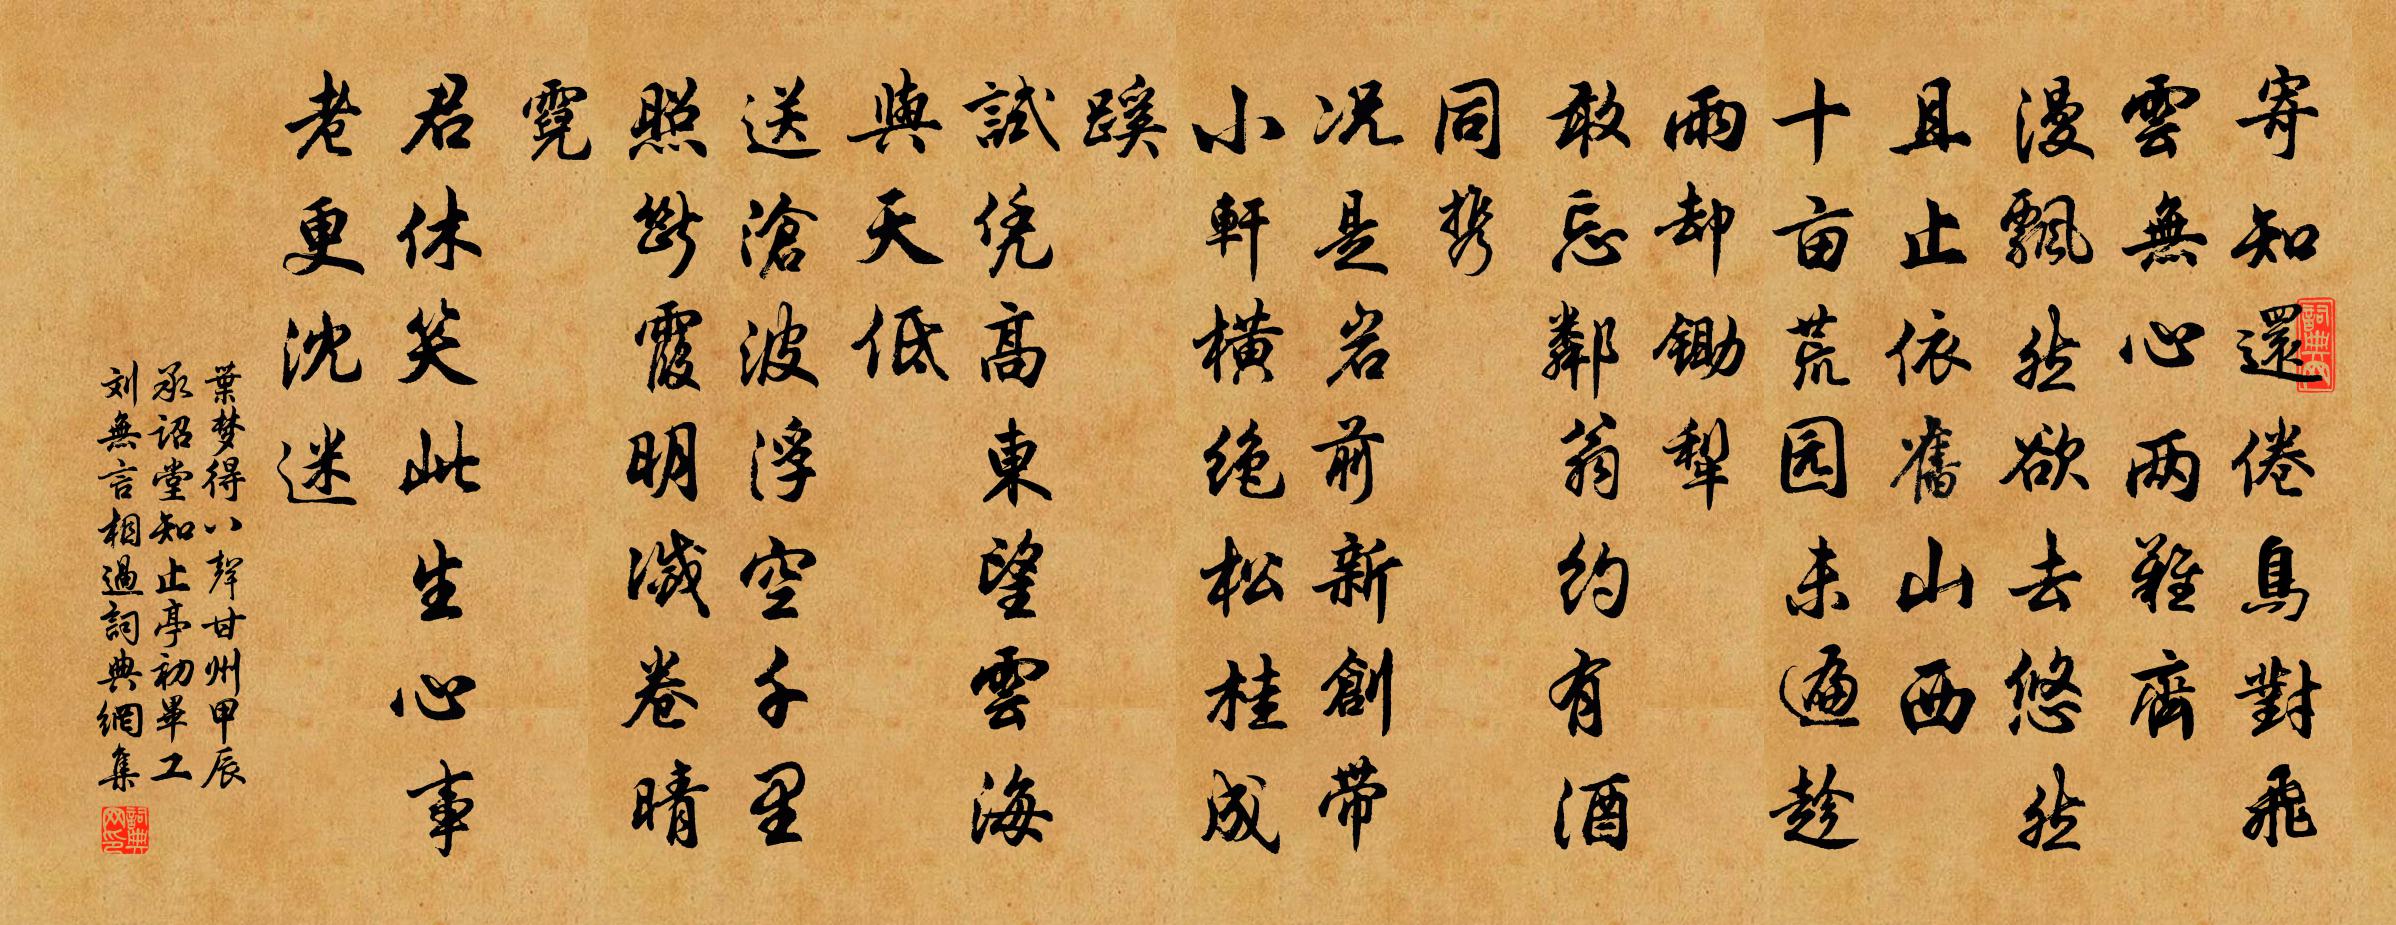 寄知還倦鳥對飛
雲無心兩難齊
漫飄然欲去悠然
且止依舊山西
十亩荒园未遍趁
雨却鋤犁
敢忘鄰翁約有酒
同携
况是岩前新創带
小軒横绝松桂成
蹊
試凭高東望雲海
與天低
送滄波浮空千里
照斷霞明滅卷晴
霓
君休笑此生心事
老更沈迷
葉梦得八聲甘州甲辰
承诏堂知止亭初畢工
刘無言相過詞典網集
詞典网
詞典网印